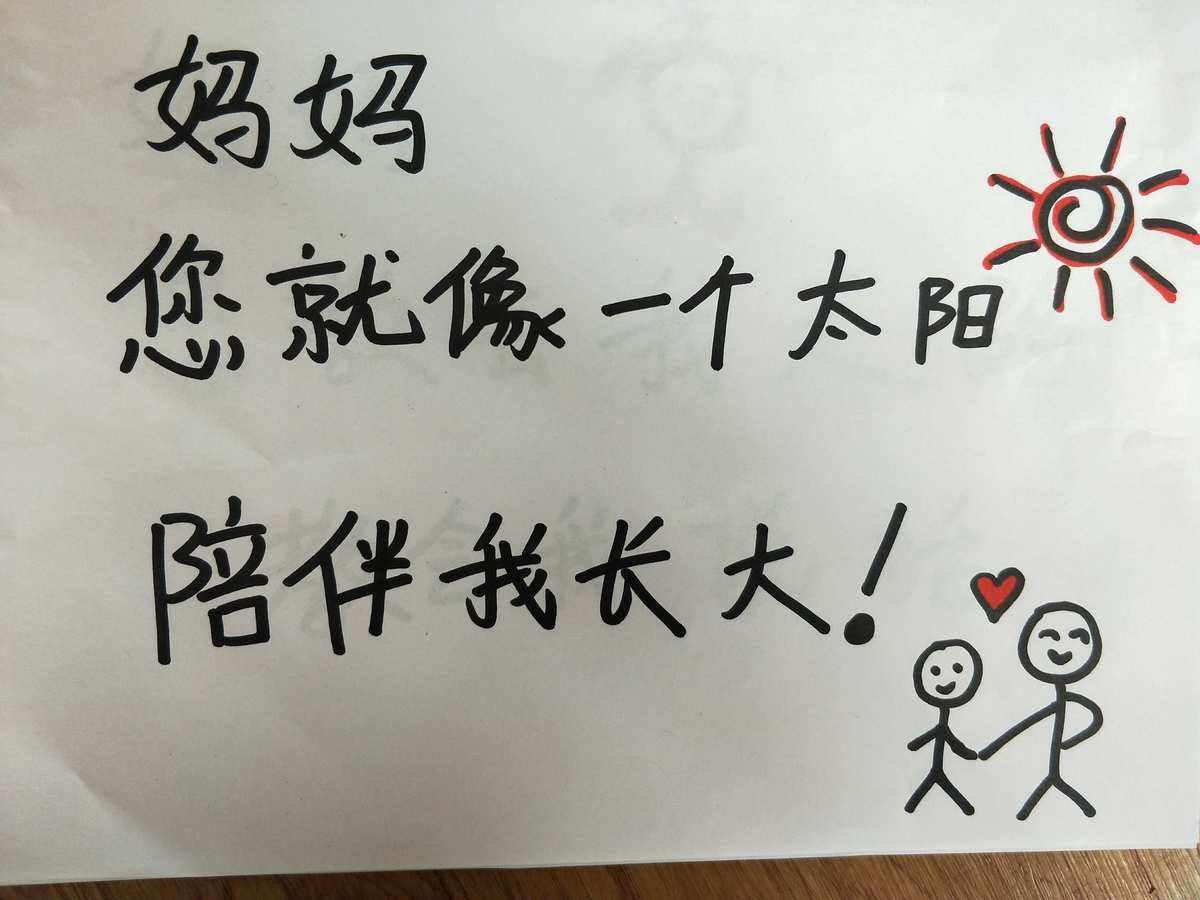 妈妈
您就像一个太阳
陪伴我长大!